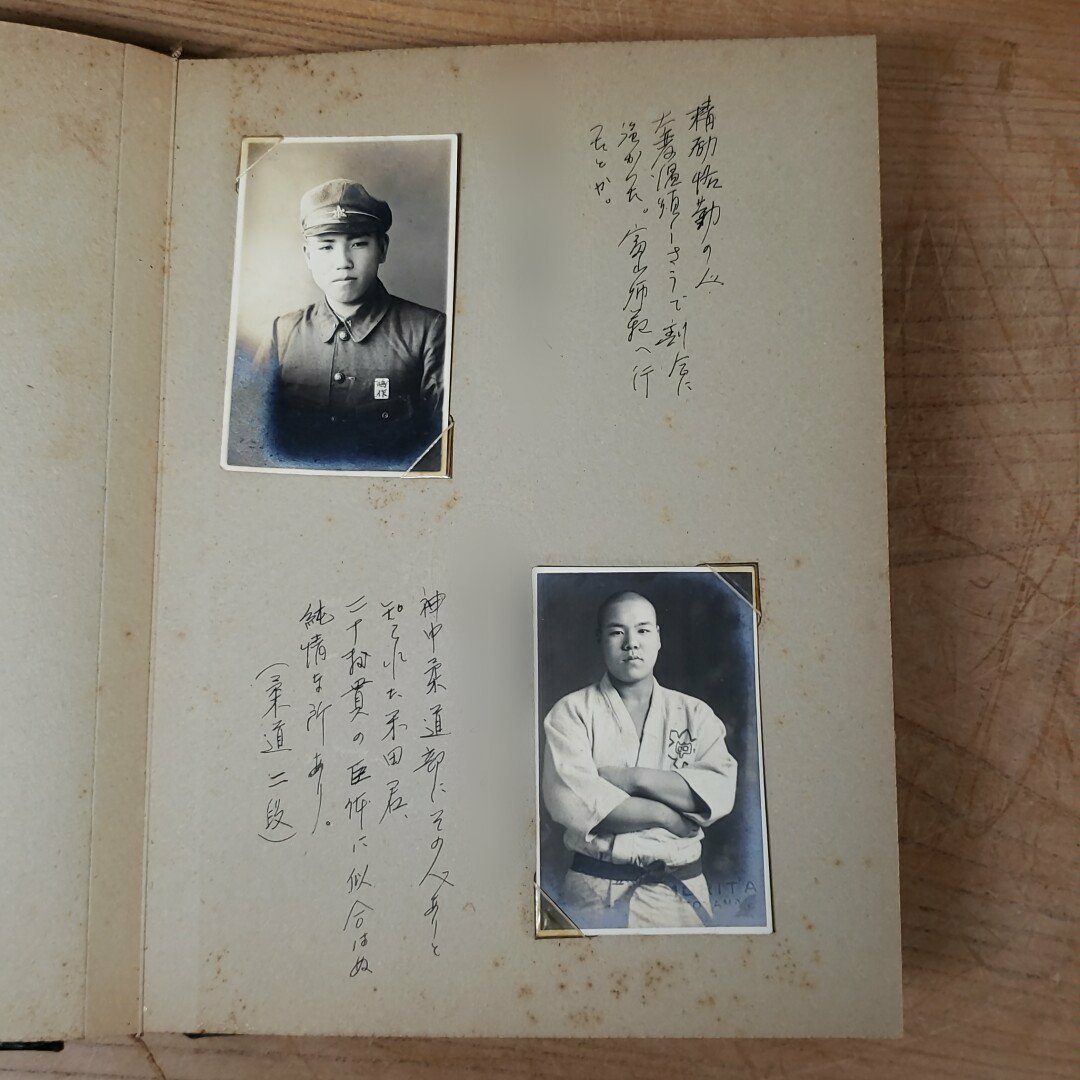 精励恪勤の人
大変温順しさうで割合に
強かった。富山師範へ行
ったとか。
神中柔道部にその人ありと
知られた米田君、
二十数貫の巨体に似合はぬ
純情な所あり。
(柔道二段)